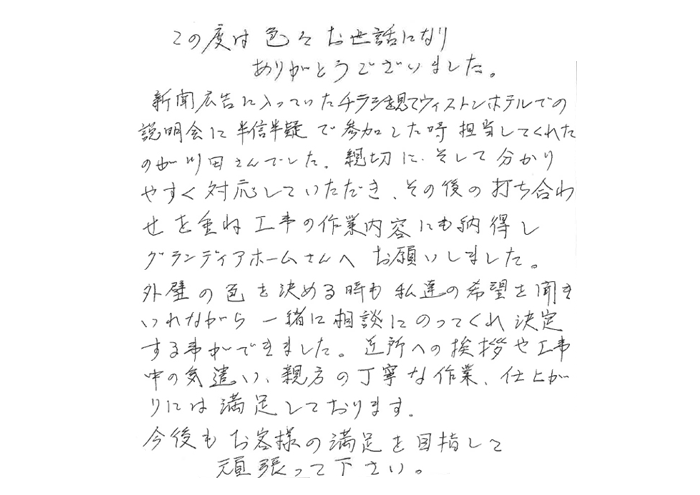 この度は色々お世話になり
ありがとうございました。
新聞広告に入っていたチラシを観てウィストンホテルでの
説明会に半信半疑で参加した時担当してくれた
のが川田さんでした。親切に、そして分かり
やすく対応していただき、その後の打ち合わ
せを重ね工事の作業内容にも納得し
グランディアホームさんへお願いしました。
外壁の色を決める時も私達の希望を聞き
いれながら一緒に相談にのってくれ決定
する事ができました。近所への挨拶や工事
中の気遣い、親方の丁寧な作業、仕上が
りには満足しております。
今後もお客様の満足を目指して
頑張って下さい。